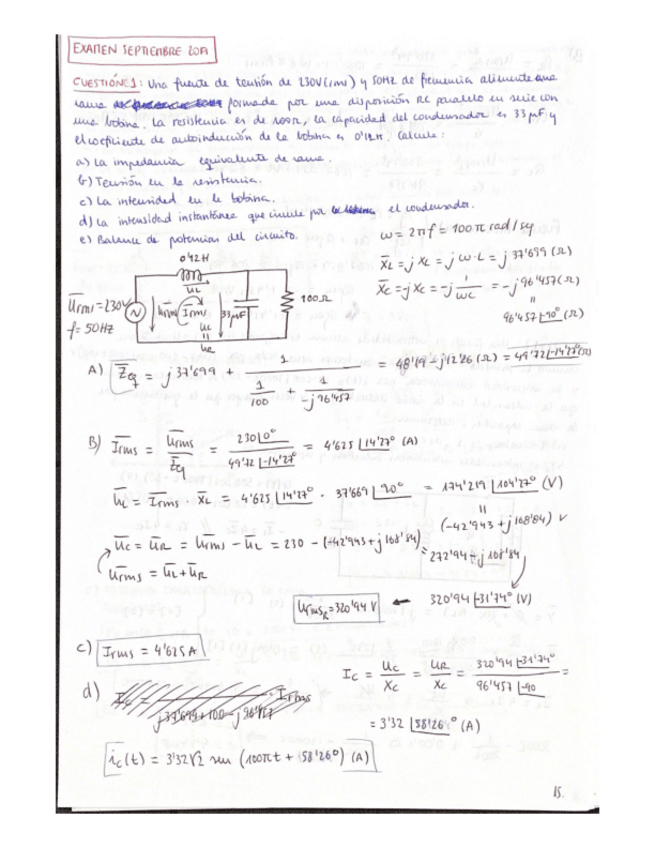 EXAMEN SEPTIEMBRE 2019
CUESTIÓN 1: Una fuente de tensión de 230V (rms) y 50Hz de frecuencia alimenta una
rama formada por una disposición RC paralelo en serie con
una bobina. La resistencia es de 100Ω, la capacidad del condensador es 33 μF y
el coeficiente de autoinducción de la bobina es 0'12H. Calcule:
a) La impedancia equivalente de rama.
b) Tensión en la resistencia.
c) La intensidad en la bobina.
d) La intensidad instantánea que circula por el condensador.
e) Balance de potencias del circuito.
ω = 2πf = 100π rad/sg
X̄L = jXL = jω·L = j 37'699 (Ω)
X̄C = -jXC = -j 1/ωC = -j 96'457 (Ω)
=
96'457 |-90° (Ω)
0'12 H
UL
Ūrms = 230V
f = 50HZ
Urms
Irms
UC
=
UR
33μF
100Ω
A) Z̄eq = j 37'699 + 1/(1/100 + 1/(-j 96'457)) = 48'19 - j 12'26 (Ω) = 49'72 |-14'27° (Ω)
B) Īrms = Ūrms/Z̄eq = 230 |0°/49'72 |-14'27° = 4'625 |14'27° (A)
ŪL = Īrms · X̄L = 4'625 |14'27° · 37'669 |90° = 174'219 |104'27° (V)
=
(-42'943 + j 168'84) V
ŪC = ŪR = Ūrms - ŪL = 230 - (-42'943 + j 168'84) = 272'94 - j 168'84
Ūrms = ŪL + ŪR
UrmsR = 320'94 V ← 320'94 |-31'74° (V)
c) Irms = 4'625 A
d)
IC = UC/XC = UR/XC = 320'94 |-31'74°/96'457 |-90 =
= 3'32 |58'26° (A)
ic(t) = 3'32√2 sen (100πt + 58'26°) (A)
15.